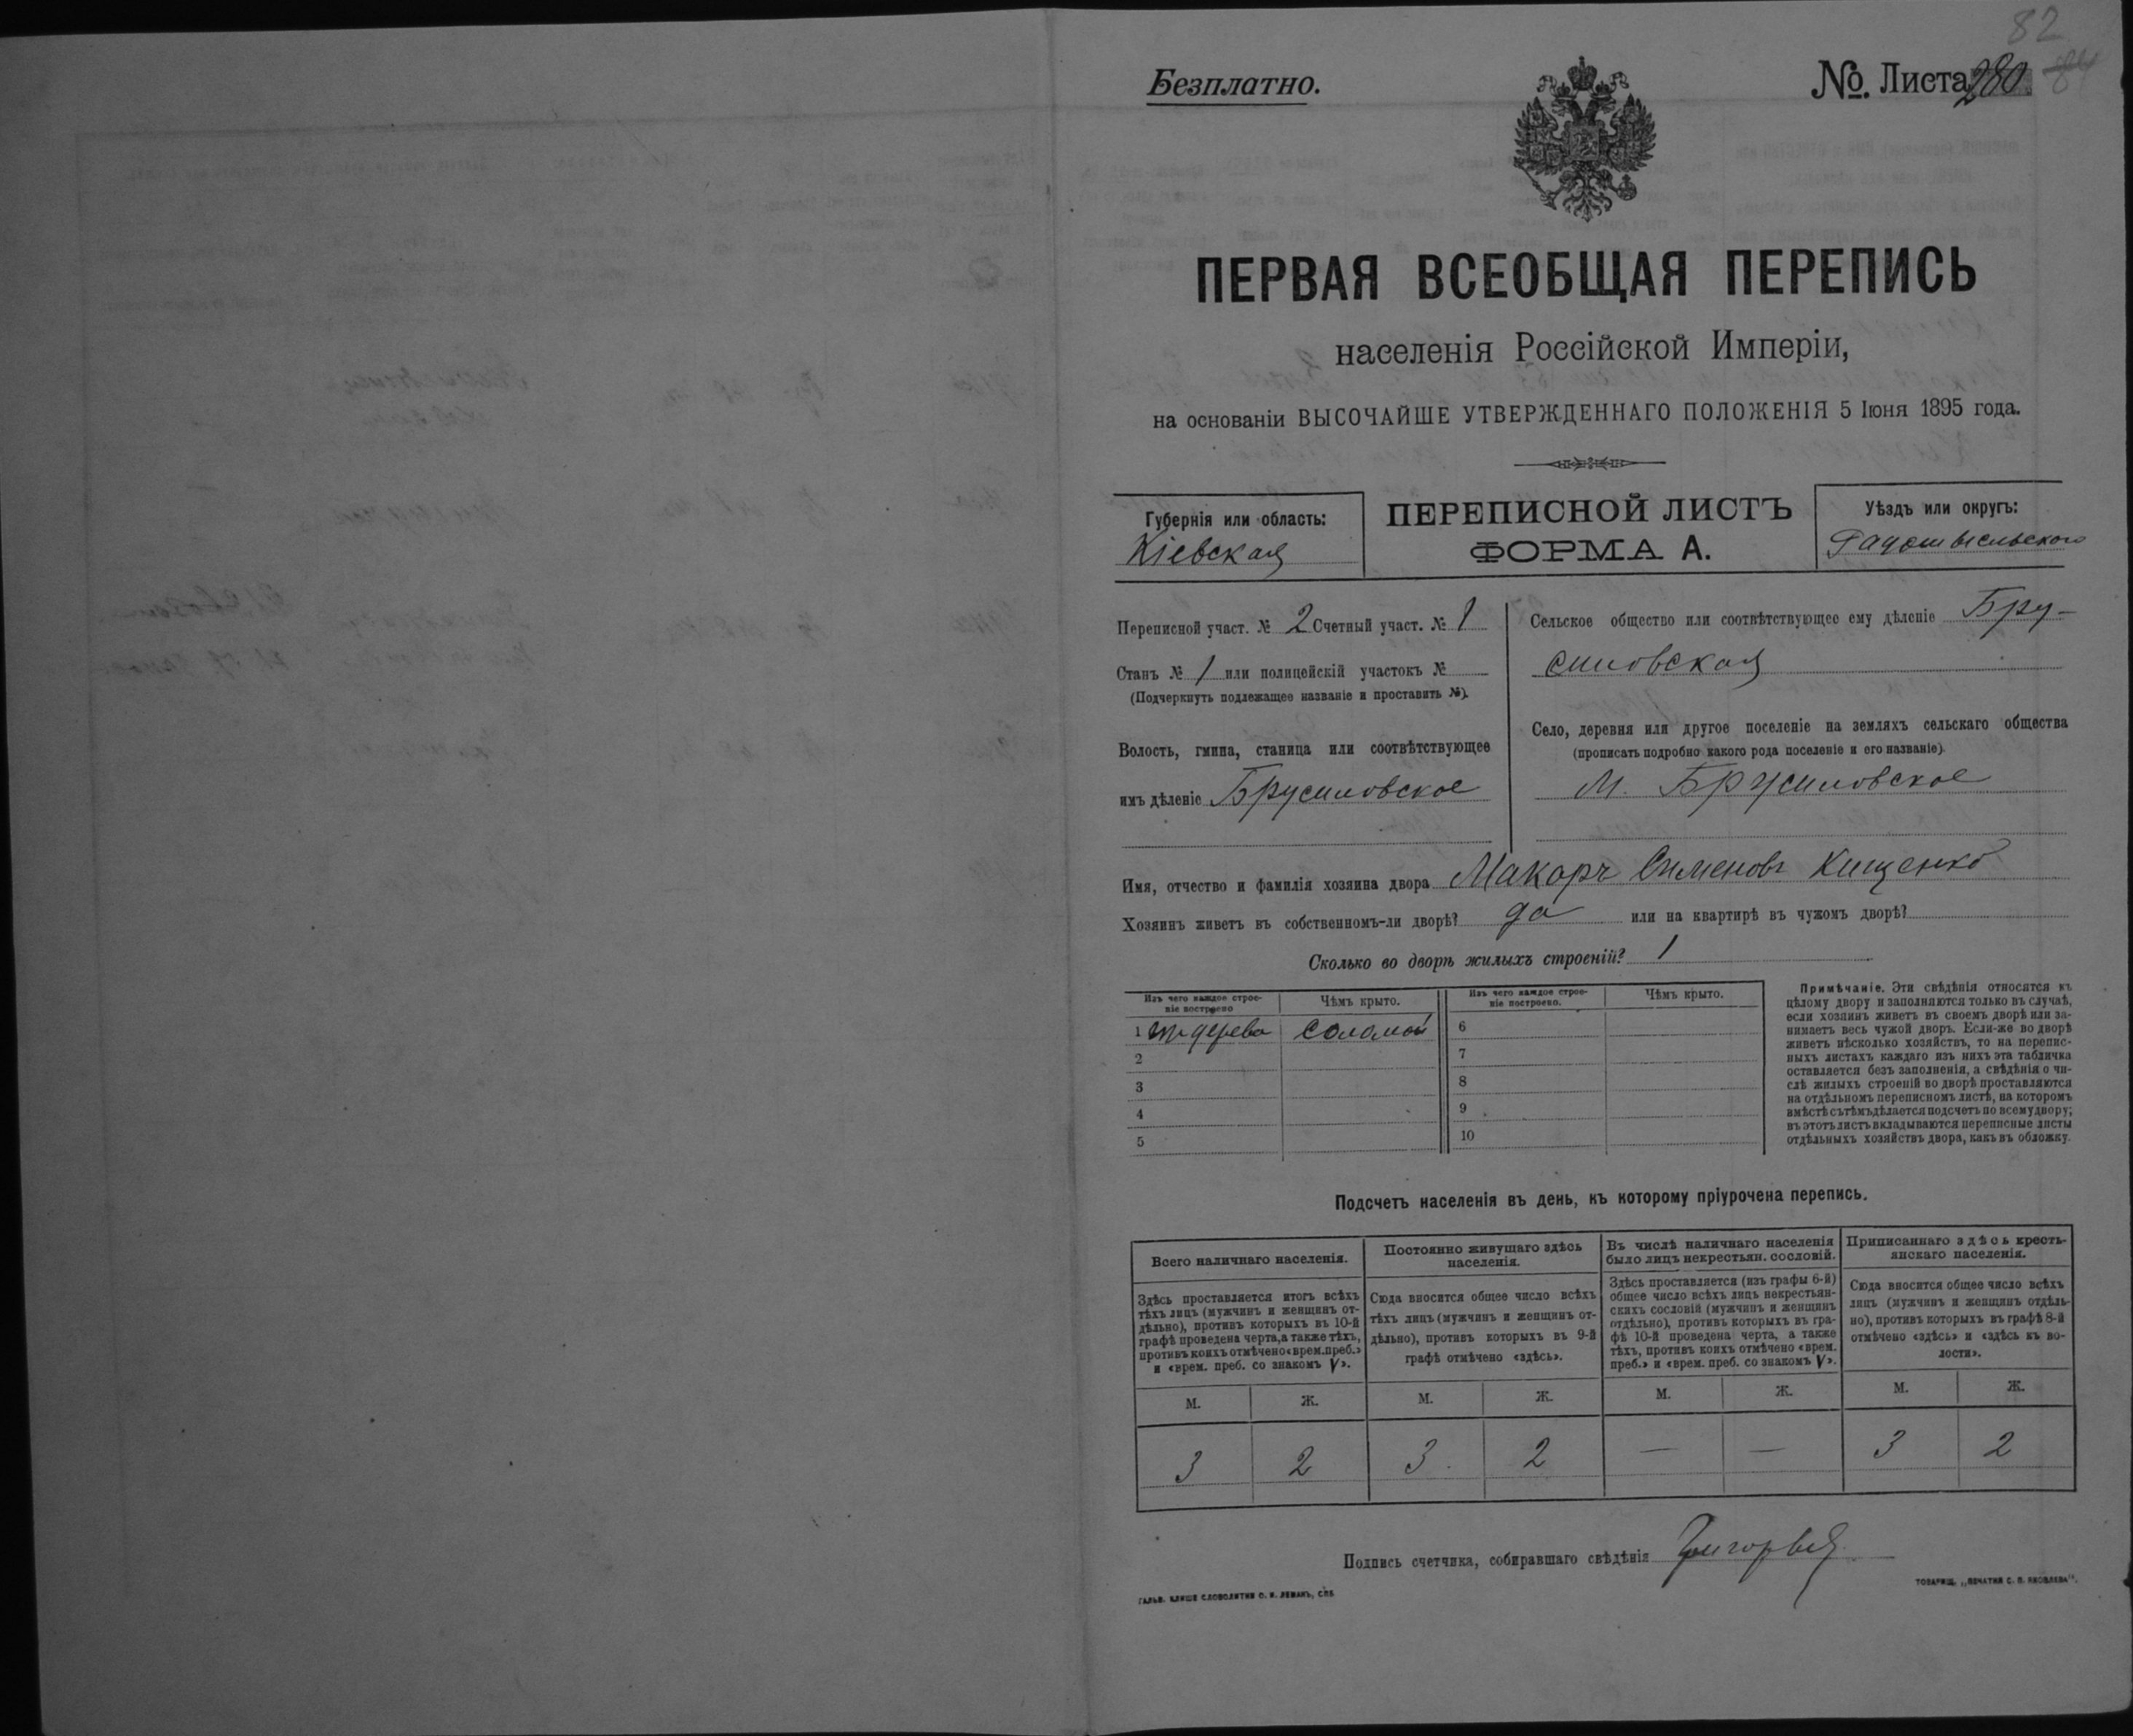 82
84
Безплатно.
№. Листа 280
ПЕРВАЯ ВСЕОБЩАЯ ПЕРЕПИСЬ
населенія Россійской Имперіи,
на основаніи ВЫСОЧАЙШЕ УТВЕРЖДЕННАГО ПОЛОЖЕНІЯ 5 Іюня 1895 года.
Губернія или область:
Кіевская
ПЕРЕПИСНОЙ ЛИСТЪ
ФОРМА А.
Уѣздъ или округъ:
Радомысльскаго
Переписной участ. № 2 Счетный участ. № 1
Станъ № 1 или полицейскій участокъ №
(Подчеркнуть подлежащее названіе и проставить №).
Волость, гмина, станица или соотвѣтствующее
имъ дѣленіе Брусиловское
Сельское общество или соотвѣтствующее ему дѣленіе Бру-
силовская
Село, деревня или другое поселеніе на земляхъ сельскаго общества
(прописать подробно какого рода поселеніе и его названіе)
М. Брусиловское
Имя, отчество и фамилія хозяина двора Макаръ Сименовъ Кищенко
Хозяинъ живетъ въ собственномъ-ли дворѣ? да или на квартирѣ въ чужомъ дворѣ?
Сколько во дворѣ жилыхъ строеній? 1
Изъ чего каждое строе-
ніе построено
Чѣмъ крыто.
Изъ чего каждое строе-
ніе построено.
Чѣмъ крыто.
1 дерева соломой 6
2 7
3 8
4 9
5 10
Примѣчаніе. Эти свѣдѣнія относятся къ
цѣлому двору и заполняются только въ случаѣ,
если хозяинъ живетъ въ своемъ дворѣ или за-
нимаетъ весь чужой дворъ. Если-же во дворѣ
живетъ нѣсколько хозяйствъ, то на перепис-
ныхъ листахъ каждаго изъ нихъ эта табличка
оставляется безъ заполненія, а свѣдѣнія о чи-
слѣ жилыхъ строеній во дворѣ проставляются
на отдѣльномъ переписномъ листѣ, на которомъ
вмѣстѣ съ тѣмъ дѣлается подсчетъ по всему двору;
въ этотъ листъ вкладываются переписные листы
отдѣльныхъ хозяйствъ двора, какъ въ обложку.
Подсчетъ населенія въ день, къ которому пріурочена перепись.
Всего наличнаго населенія.
Здѣсь проставляется итогъ всѣхъ
тѣхъ лицъ (мужчинъ и женщинъ от-
дѣльно), противъ которыхъ въ 10-й
графѣ проведена черта, а также тѣхъ,
противъ коихъ отмѣчено «врем. преб.»
и «врем. преб. со знакомъ V».
Постоянно живущаго здѣсь
населенія.
Сюда вносится общее число всѣхъ
тѣхъ лицъ (мужчинъ и женщинъ от-
дѣльно), противъ которыхъ въ 9-й
графѣ отмѣчено «здѣсь».
Въ числѣ наличнаго населенія
было лицъ некрестьян. сословій.
Здѣсь проставляется (изъ графы 6-й)
общее число всѣхъ лицъ некрестьян-
скихъ сословій (мужчинъ и женщинъ
отдѣльно), противъ которыхъ въ гра-
фѣ 10-й проведена черта, а также
тѣхъ, противъ коихъ отмѣчено «врем.
преб.» и «врем. преб. со знакомъ V».
Приписаннаго здѣсь кресть-
янскаго населенія.
Сюда вносится общее число всѣхъ
лицъ (мужчинъ и женщинъ отдѣль-
но), противъ которыхъ въ графѣ 8-й
отмѣчено «здѣсь» и «здѣсь къ во-
лости».
М. Ж. М. Ж. М. Ж. М. Ж.
3 2 3 2 — — 3 2
Подпись счетчика, собиравшаго свѣдѣнія
ГАЛЬВ. КЛИШЕ СЛОВОЛИТНИ О. И. ЛЕМАНЪ, СПБ.
ТОВАРИЩ. „ПЕЧАТНЯ С. П. ЯКОВЛЕВА“.